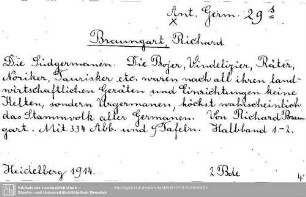 Ant. Germ. 29 s
x
Braungart, Richard
Die Südgermanen. Die Bojer, Vindelizier, Räter,
Noriker, Taurisker etc. waren nach all ihren land-
wirtschaftlichen Geräten und Einrichtungen keine
Kelten, sondern Urgermanen, höchst wahrscheinlich
das Stammvolk aller Germanen. Von Richard Braun
gart. Mit 334 Abb. und 9 Tafeln. Halbband 1-2.
Heidelberg 1914. 2 Bde
4°